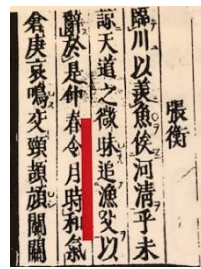 張衡
臨川以羨魚俟河清乎未
諒天道之微昧追漁父以
辭於是仲春令月時和氣
倉庚哀鳴交頸頡頏關關